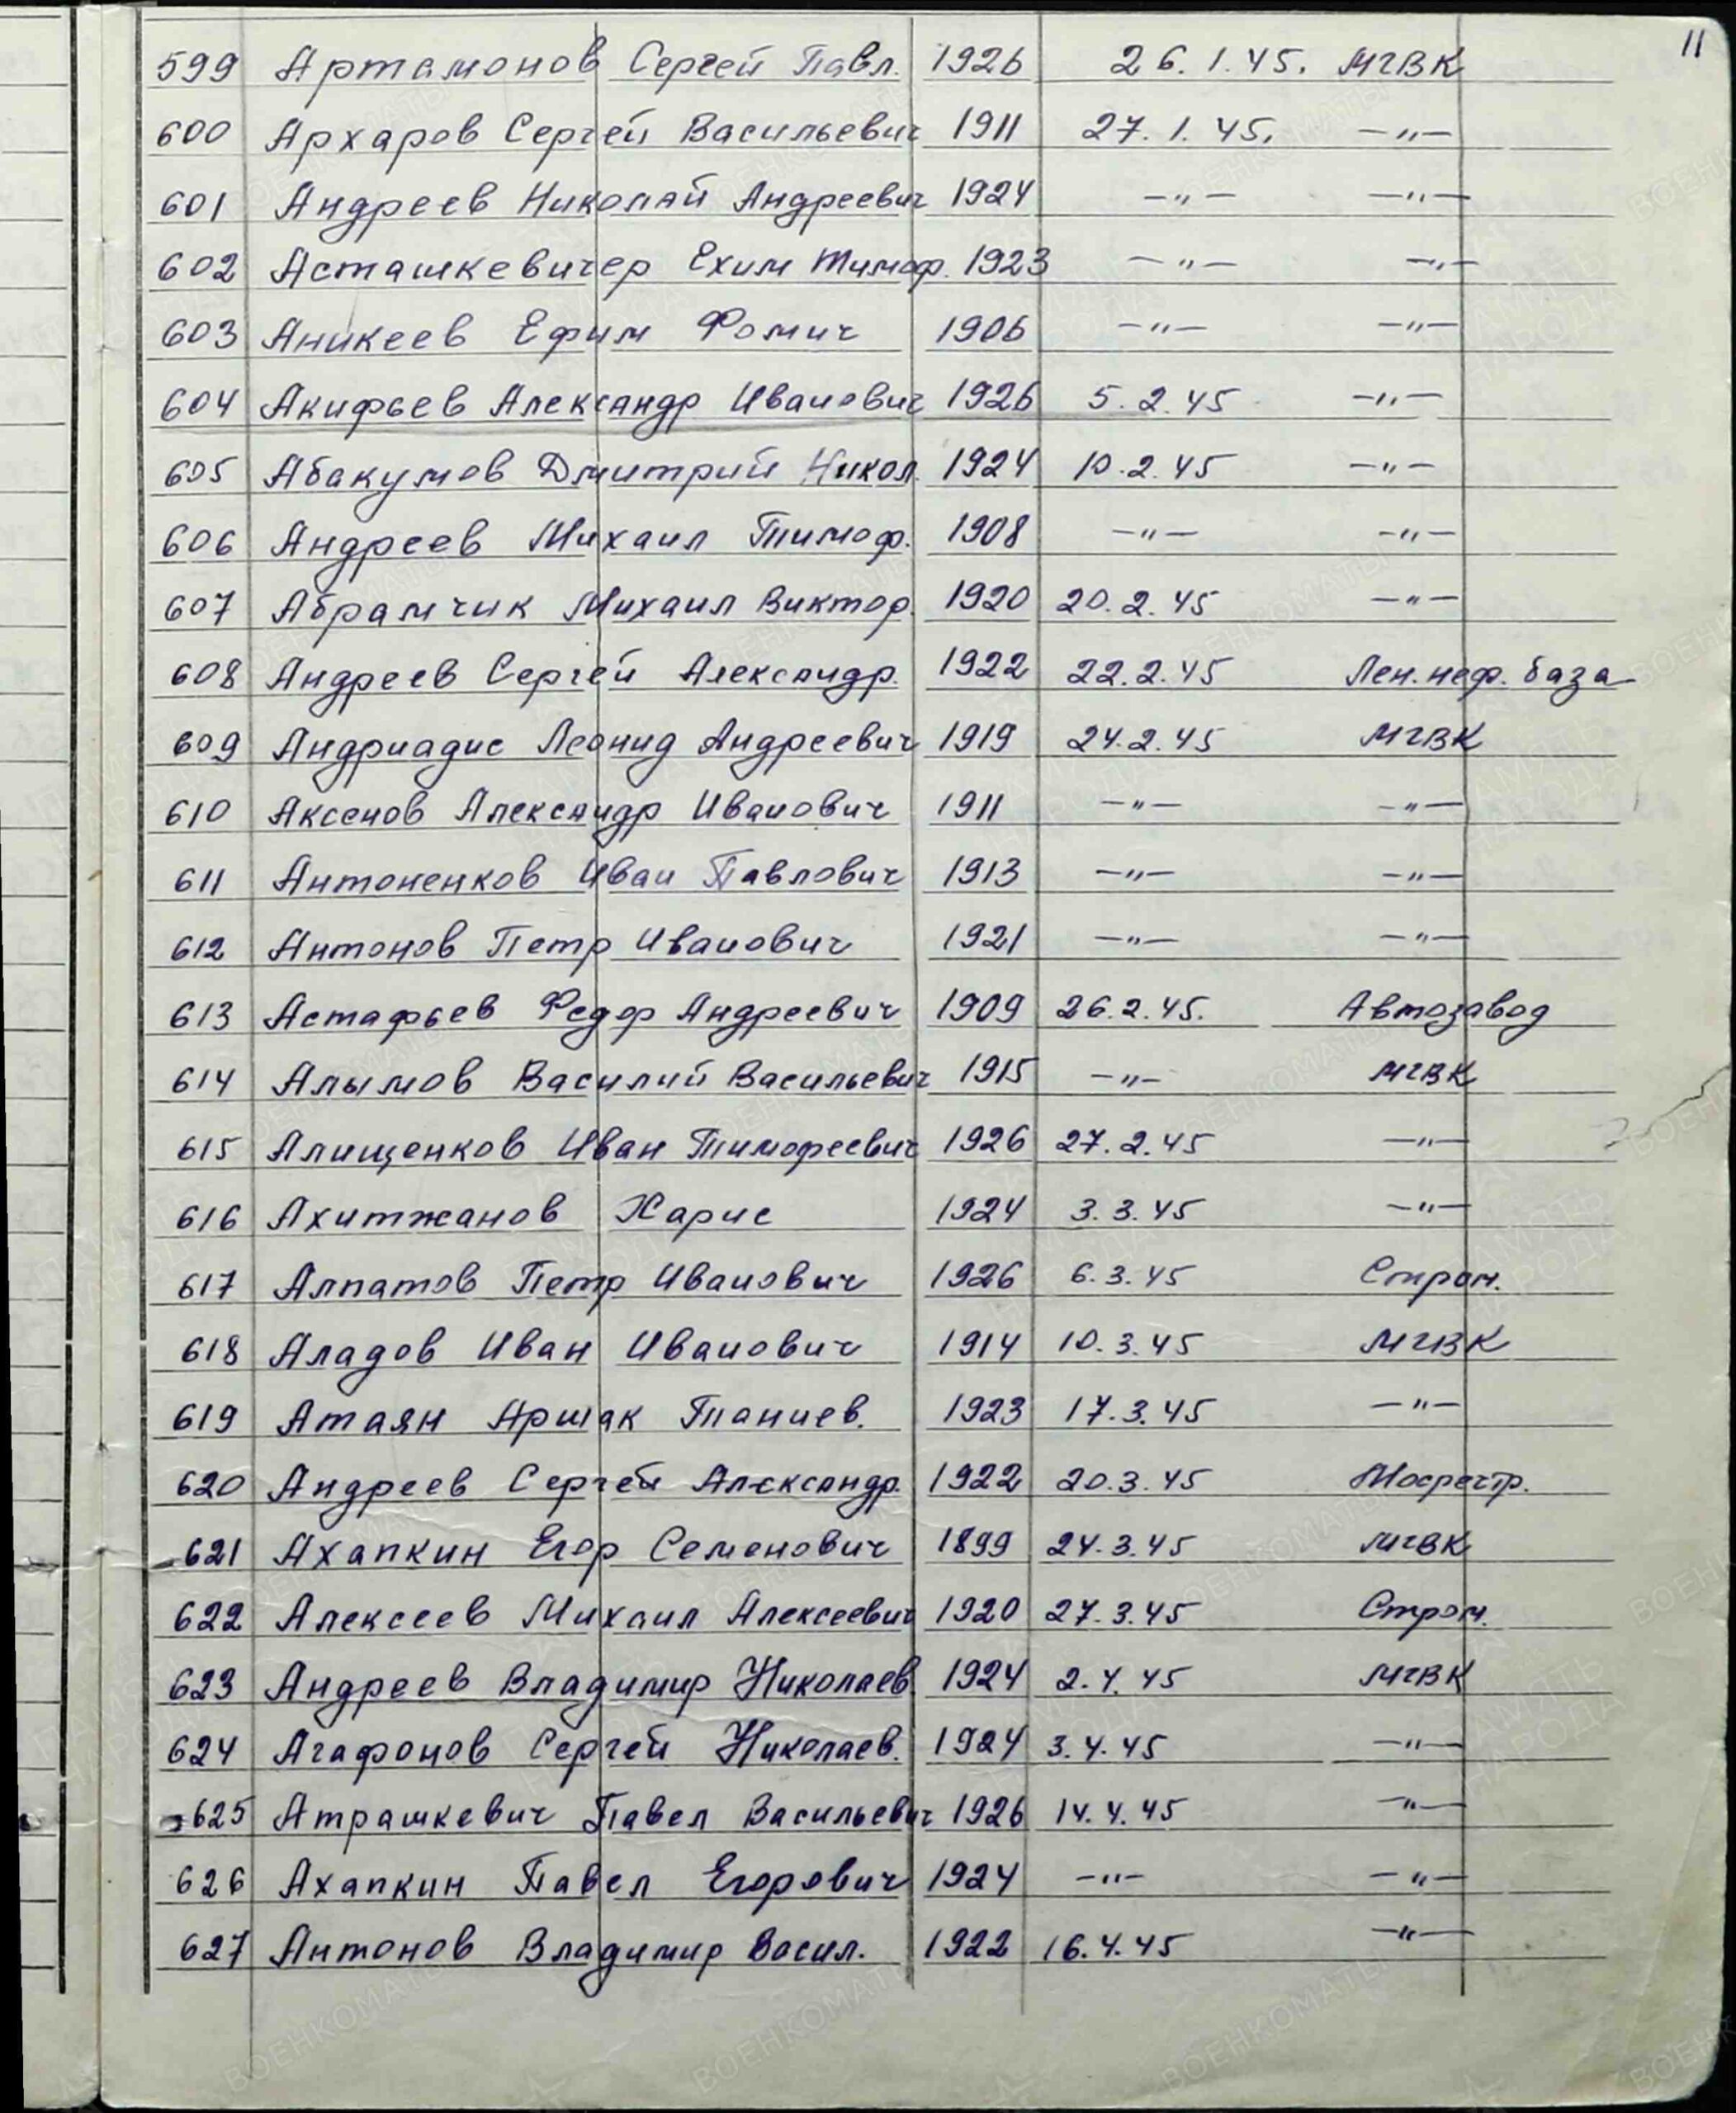 11
599 Артамонов Сергей Павл. 1926 26.1.45. МГВК
600 Архаров Сергей Васильевич 1911 27.1.45. —"—
601 Андреев Николай Андреевич 1924 —"— —"—
602 Асташкевичер Ехим Тимоф. 1923 —"— —"—
603 Аникеев Ефим Фомич 1906 —"— —"—
604 Акифьев Александр Иванович 1926 5.2.45 —"—
605 Абакумов Дмитрий Никол. 1924 10.2.45 —"—
606 Андреев Михаил Тимоф. 1908 —"— —"—
607 Абрамчик Михаил Виктор. 1920 20.2.45 —"—
608 Андреев Сергей Александр. 1922 22.2.45 Лен.неф. база
609 Андриадис Леонид Андреевич 1919 24.2.45 МГВК
610 Аксенов Александр Иванович 1911 —"— —"—
611 Антоненков Иван Павлович 1913 —"— —"—
612 Антонов Петр Иванович 1921 —"— —"—
613 Астафьев Федор Андреевич 1909 26.2.45. Автозавод
614 Алымов Василий Васильевич 1915 —"— МГВК
615 Алищенков Иван Тимофеевич 1926 27.2.45 —"—
616 Ахитжанов Харис 1924 3.3.45 —"—
617 Алпатов Петр Иванович 1926 6.3.45 Стром.
618 Аладов Иван Иванович 1914 10.3.45 МГВК
619 Атаян Аршак Таниев. 1923 17.3.45 —"—
620 Андреев Сергей Александр. 1922 20.3.45
621 Ахапкин Егор Семенович 1899 24.3.45 МГВК
622 Алексеев Михаил Алексеевич 1920 27.3.45 Стром.
623 Андреев Владимир Николаев. 1924 2.4.45 МГВК
624 Агафонов Сергей Николаев. 1924 3.4.45 —"—
625 Атрашкевич Павел Васильевич 1926 14.4.45 —"—
626 Ахапкин Павел Егорович 1924 —"— —"—
627 Антонов Владимир Васил. 1922 16.4.45 —"—